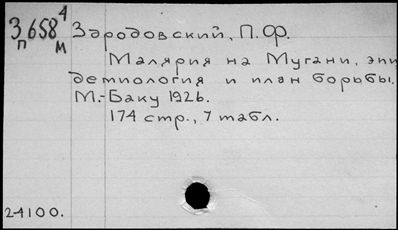 З 658 4
П М
Здродовский, П. Ф.
Малярия на Мугани, эпи
демиология и план борьбы.
М.-Баку 1926.
174 стр., 7 табл.
2-4100.